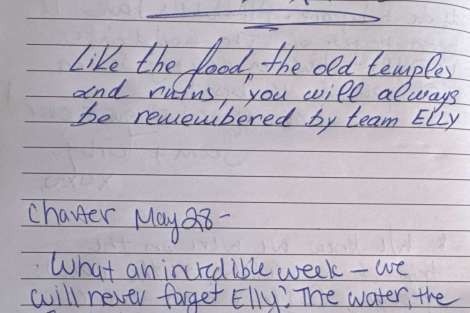 Like the food, the old temples
and ruins, you will always
be remembered by team ELLY
Charter May 28-
What an incredible week - we
will never forget Elly! The water, the